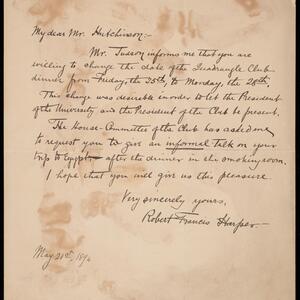 My dear Mr. Hutchinson:-
Mr. Judson informs me that you are
willing to change the date of the Quadrangle Club
dinner from Friday, the 25th, to Monday, the 28th.
This change was desirable in order to let the President
of the University and the President of the Club be present.
The House-Committee of the Club has asked me
to request you to give an informal talk on your
trip to Egypt — after the dinner in the smoking room.
I hope that you will give us this pleasure.
Very sincerely yours,
Robert Francis Harper-
May 21st, 189